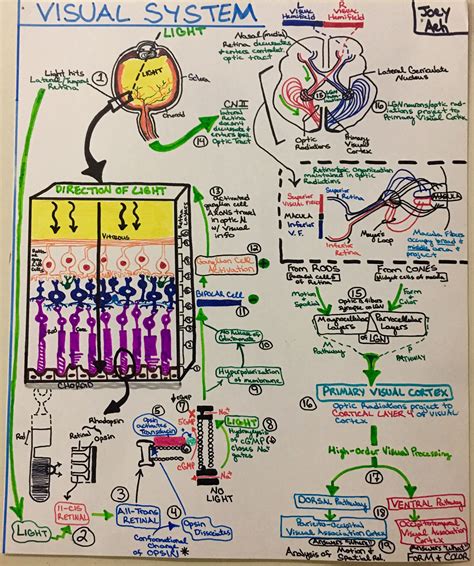 VISUAL SYSTEM
Joey
Aeh
LIGHT
L
Visual
Hemifield
R
Visual
Hemifield
Nasal (medial)
Retina decussates
& enters contralat
optic tract
Light hits
Lateral/Temporal
Retina
1
LIGHT
Sclera
Choroid
CN II
Lateral
Retina
doesn't
decussate &
enters Ipsi
Optic Tract
14
Lateral Geniculate
Nucleus
LGN
16
LGN neurons/optic radiations
project to
Primary Visual Cortex
Optic
Radiations
Primary
Visual
Cortex
DIRECTION OF LIGHT
Vitreous
CHOROID
13
Activated
ganglion cell
AXONS travel
in optic N
w/ visual
info
12
Ganglion Cell
Activation
11
Bipolar Cell
10
of
Glutamate
Hyperpolarization
of membrane
9
Retinotopic Organization
maintained in optic
Radiations
Superior
Visual Field
MACULA
Inferior
V.F.
Superior
Retina
MACULA
Inferior
Retina
Meyer's
Loop
Macular Fibers
occupy broad &
middle area of
project
From RODS
From CONES
Motion
&
Spatial
15
Optic N fibers
synapse on LGN
Form
&
Color
Magnocellular
Layers
Parvocellular
Layers
of LGN
M
Pathway
P
PATHWAY
16
PRIMARY VISUAL CORTEX
Optic Radiations project to
CORTICAL LAYER 4 of VISUAL
CORTEX
High-Order Visual Processing
17
DORSAL Pathway
VENTRAL Pathway
18
Parieto-Occipital
Visual Association Cortex
Occipitotemporal
Visual Association
Cortex
Answers "Where?"
Answers "What?"
19
Analysis of Motion &
Spatial Rel.
FORM & COLOR
Rod
Rhodopsin
Retinal
Opsin
5
Opsin
activates
Transducin
7
cGMP
5'GMP
cGMP
Na+
Na+
LIGHT
8
Hydrolysis
of cGMP
closes Na+
gates
6
NO
LIGHT
LIGHT
2
11-cis
RETINAL
3
All-Trans
RETINAL
4
Opsin
Dissociates
Conformational
change of
OPSIN *